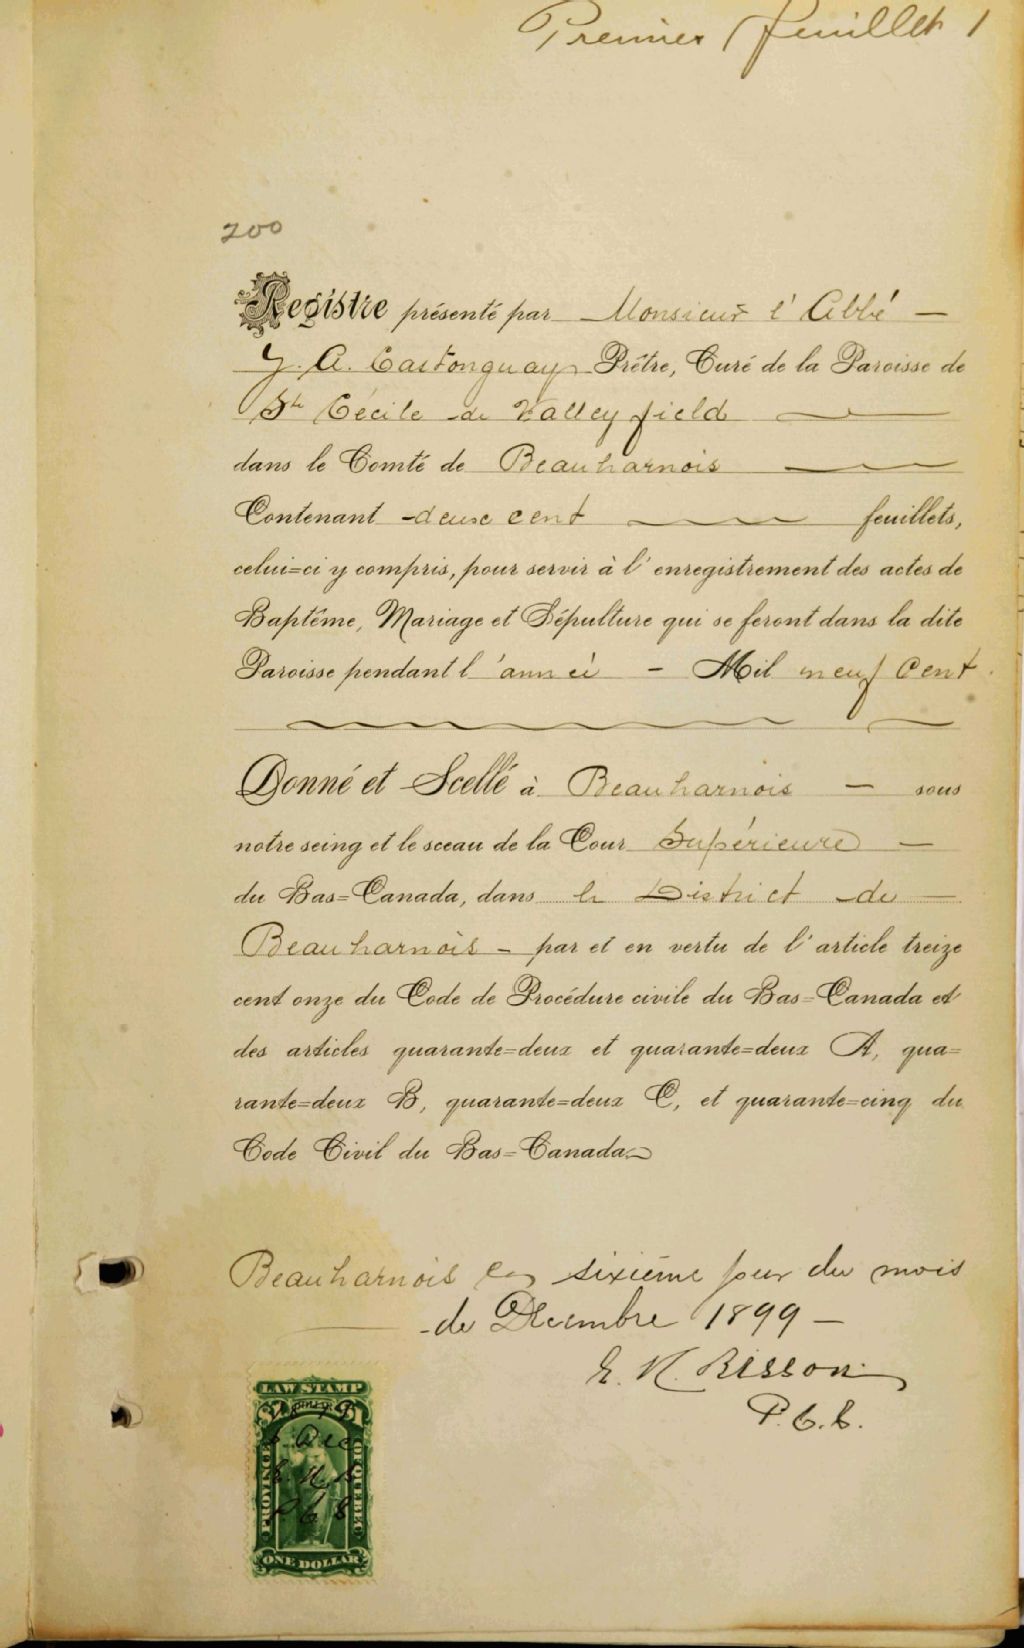 Premier feuillet 1
200
Registre présenté par Monsieur l'Abbé —
J. A. Castonguay Prêtre, Curé de la Paroisse de
Ste Cécile de Valleyfield
dans le Comté de Beauharnois
Contenant deux cent feuillets,
celui=ci y compris, pour servir à l'enregistrement des actes de
Baptême, Mariage et Sépulture qui se feront dans la dite
Paroisse pendant l'année — Mil neuf Cent
Donné et Scellé à Beauharnois — sous
notre seing et le sceau de la Cour Supérieure —
du Bas=Canada, dans le District de —
Beauharnois — par et en vertu de l'article treize
cent onze du Code de Procédure civile du Bas=Canada et
des articles quarante=deux et quarante=deux A, qua=
rante=deux B, quarante=deux C, et quarante=cinq du
Code Civil du Bas=Canada.
Beauharnois ce sixième jour du mois
de Décembre 1899 —
E. H. Bisson
P. C. S.
LAW STAMP
$1 $1
PROVINCE OF QUEBEC
6 Dec
E. H. B
P C S
ONE DOLLAR